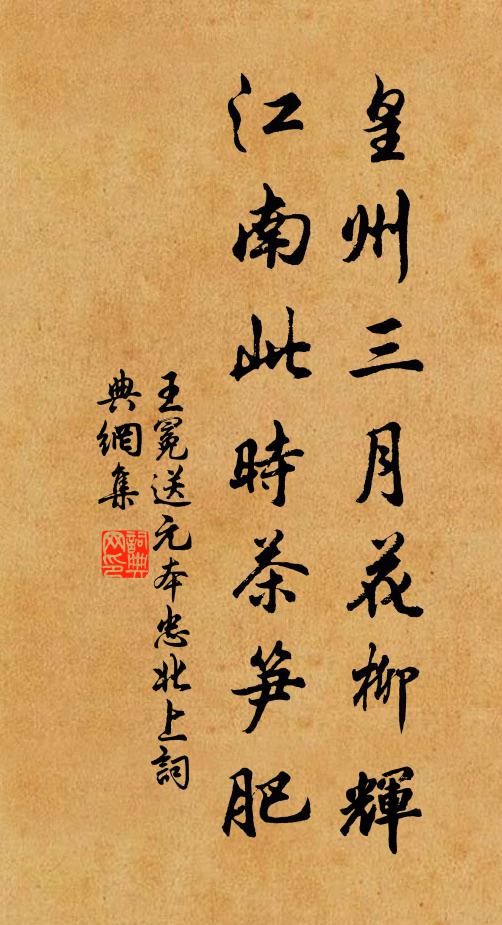 皇州三月花柳輝
江南此時茶笋肥
王冕送元本忠北上詞
典網集
詞典網印